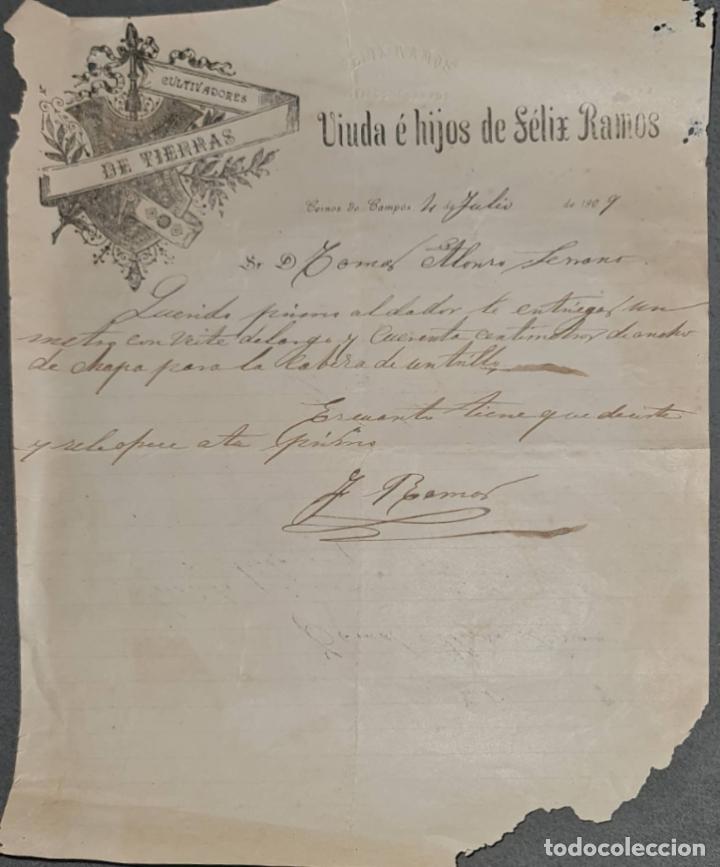 FÉLIX RAMOS
CULTIVADORES
DE TIERRAS
Viuda é hijos de Félix Ramos
Ceinos de Campos 4 de Julio de 1909
Sr D Tomas Alonso Serrano
Querido primo al dador te entregas un
metro con veite de largo y cuarenta centimetros de ancho
de chapa para la cabeza de un trillo
Es cuanto tiene que decirte
y se te ofrece a tu primo
F Ramos
todocoleccion